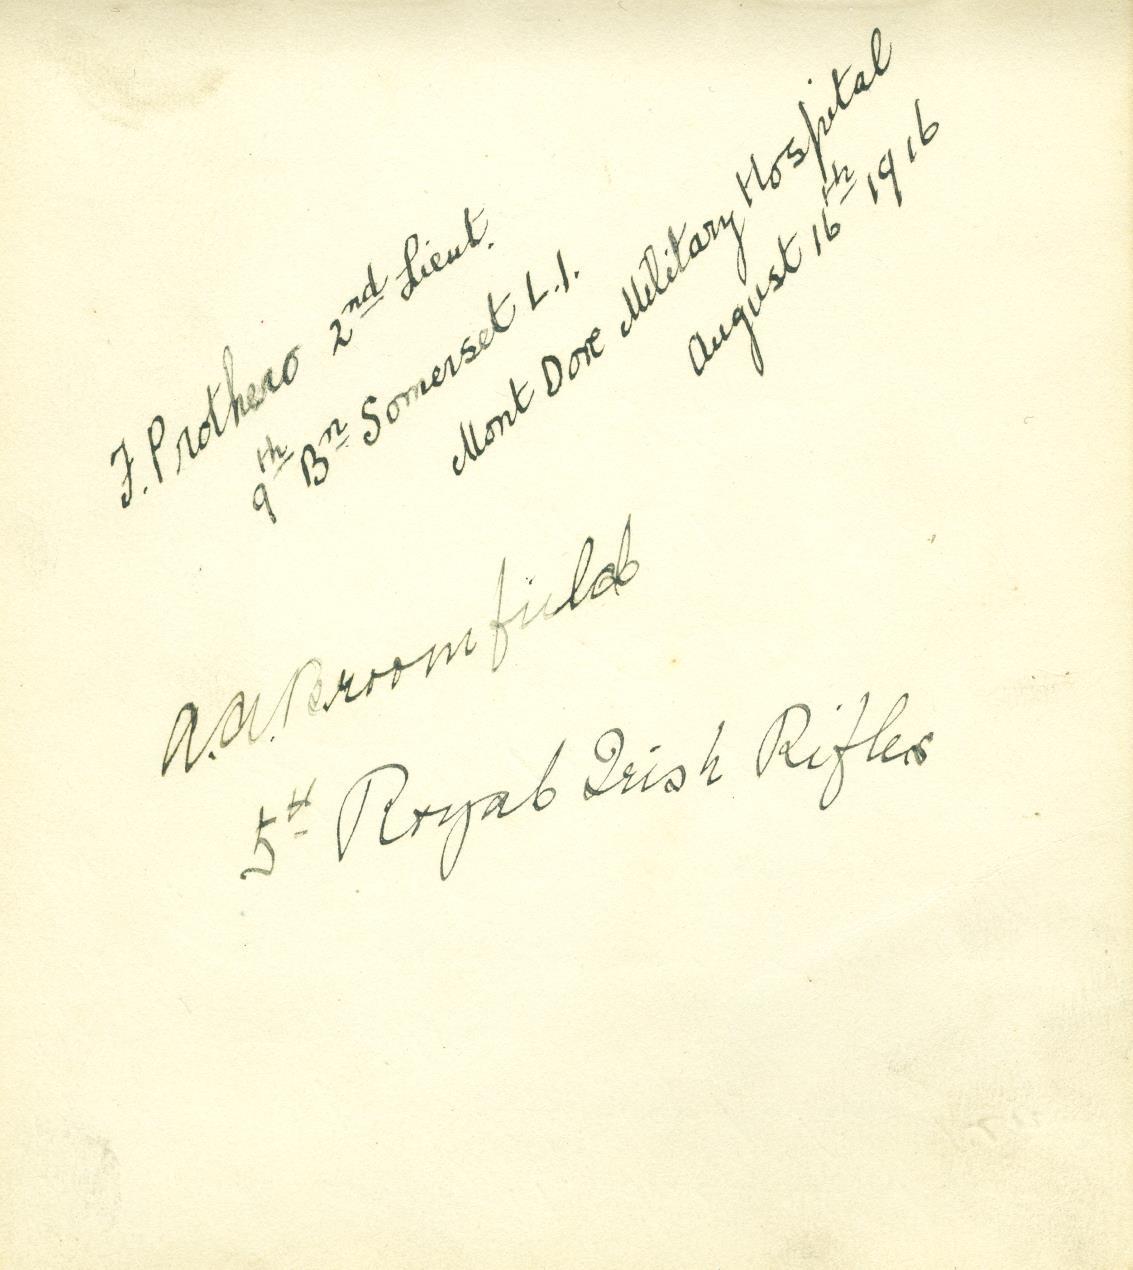 F. Prothero 2nd Lieut.
9th Bn Somerset L.I.
Mont Dore Military Hospital
August 16th 1916
A. Broomfield
5th Royal Irish Rifles